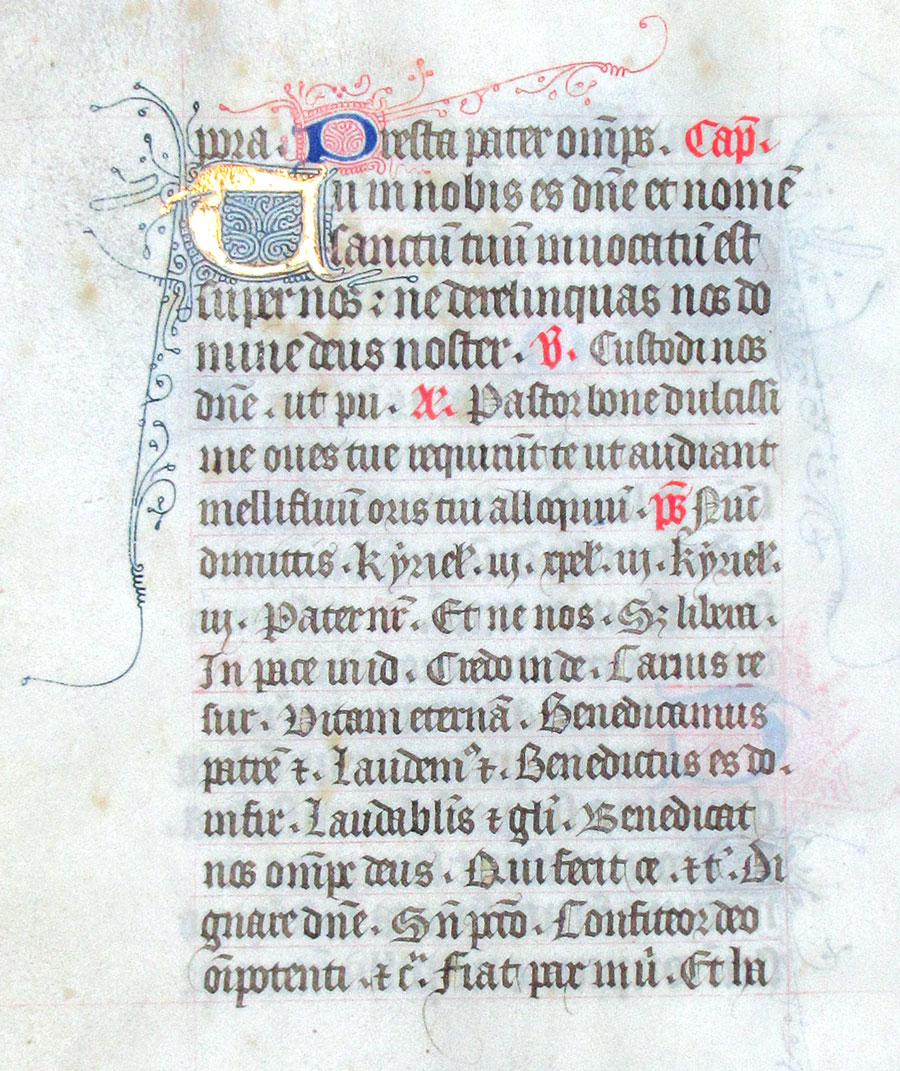 ppra. Presta pater om̄ps. Cap̄.
Tu in nobis es dn̄e et nomē
sanctū tuū inuocatū est
super nos : ne derelinquas nos do
mine deus noster. V̄. Custodi nos
dn̄e. ut pu. Aē. Pastor bone dulcissi
me oues tue requirūt te ut audiant
mellifluū oris tui alloquiū. ps̄ Nūc
dimittis. kyriel'. iij. xpel'. iij. kyriel'.
iij. Pater nr̄. Et ne nos. Sz libera.
In pace in id. Credo in de. Carnis re
sur. Vitam eternā. Benedicamus
patrē ⁊. Laudemꝰ ⁊. Benedictus es do.
in fir. Laudabl̄is ⁊ gl̄i. Benedicat
nos om̄pr deus. Qui fecit ce. ⁊ t'. Di
gnare dn̄e. Sn̄ pcc̄o. Confiteor deo
oīpotenti. ⁊ c̄. Fiat pax in ū. Et ha